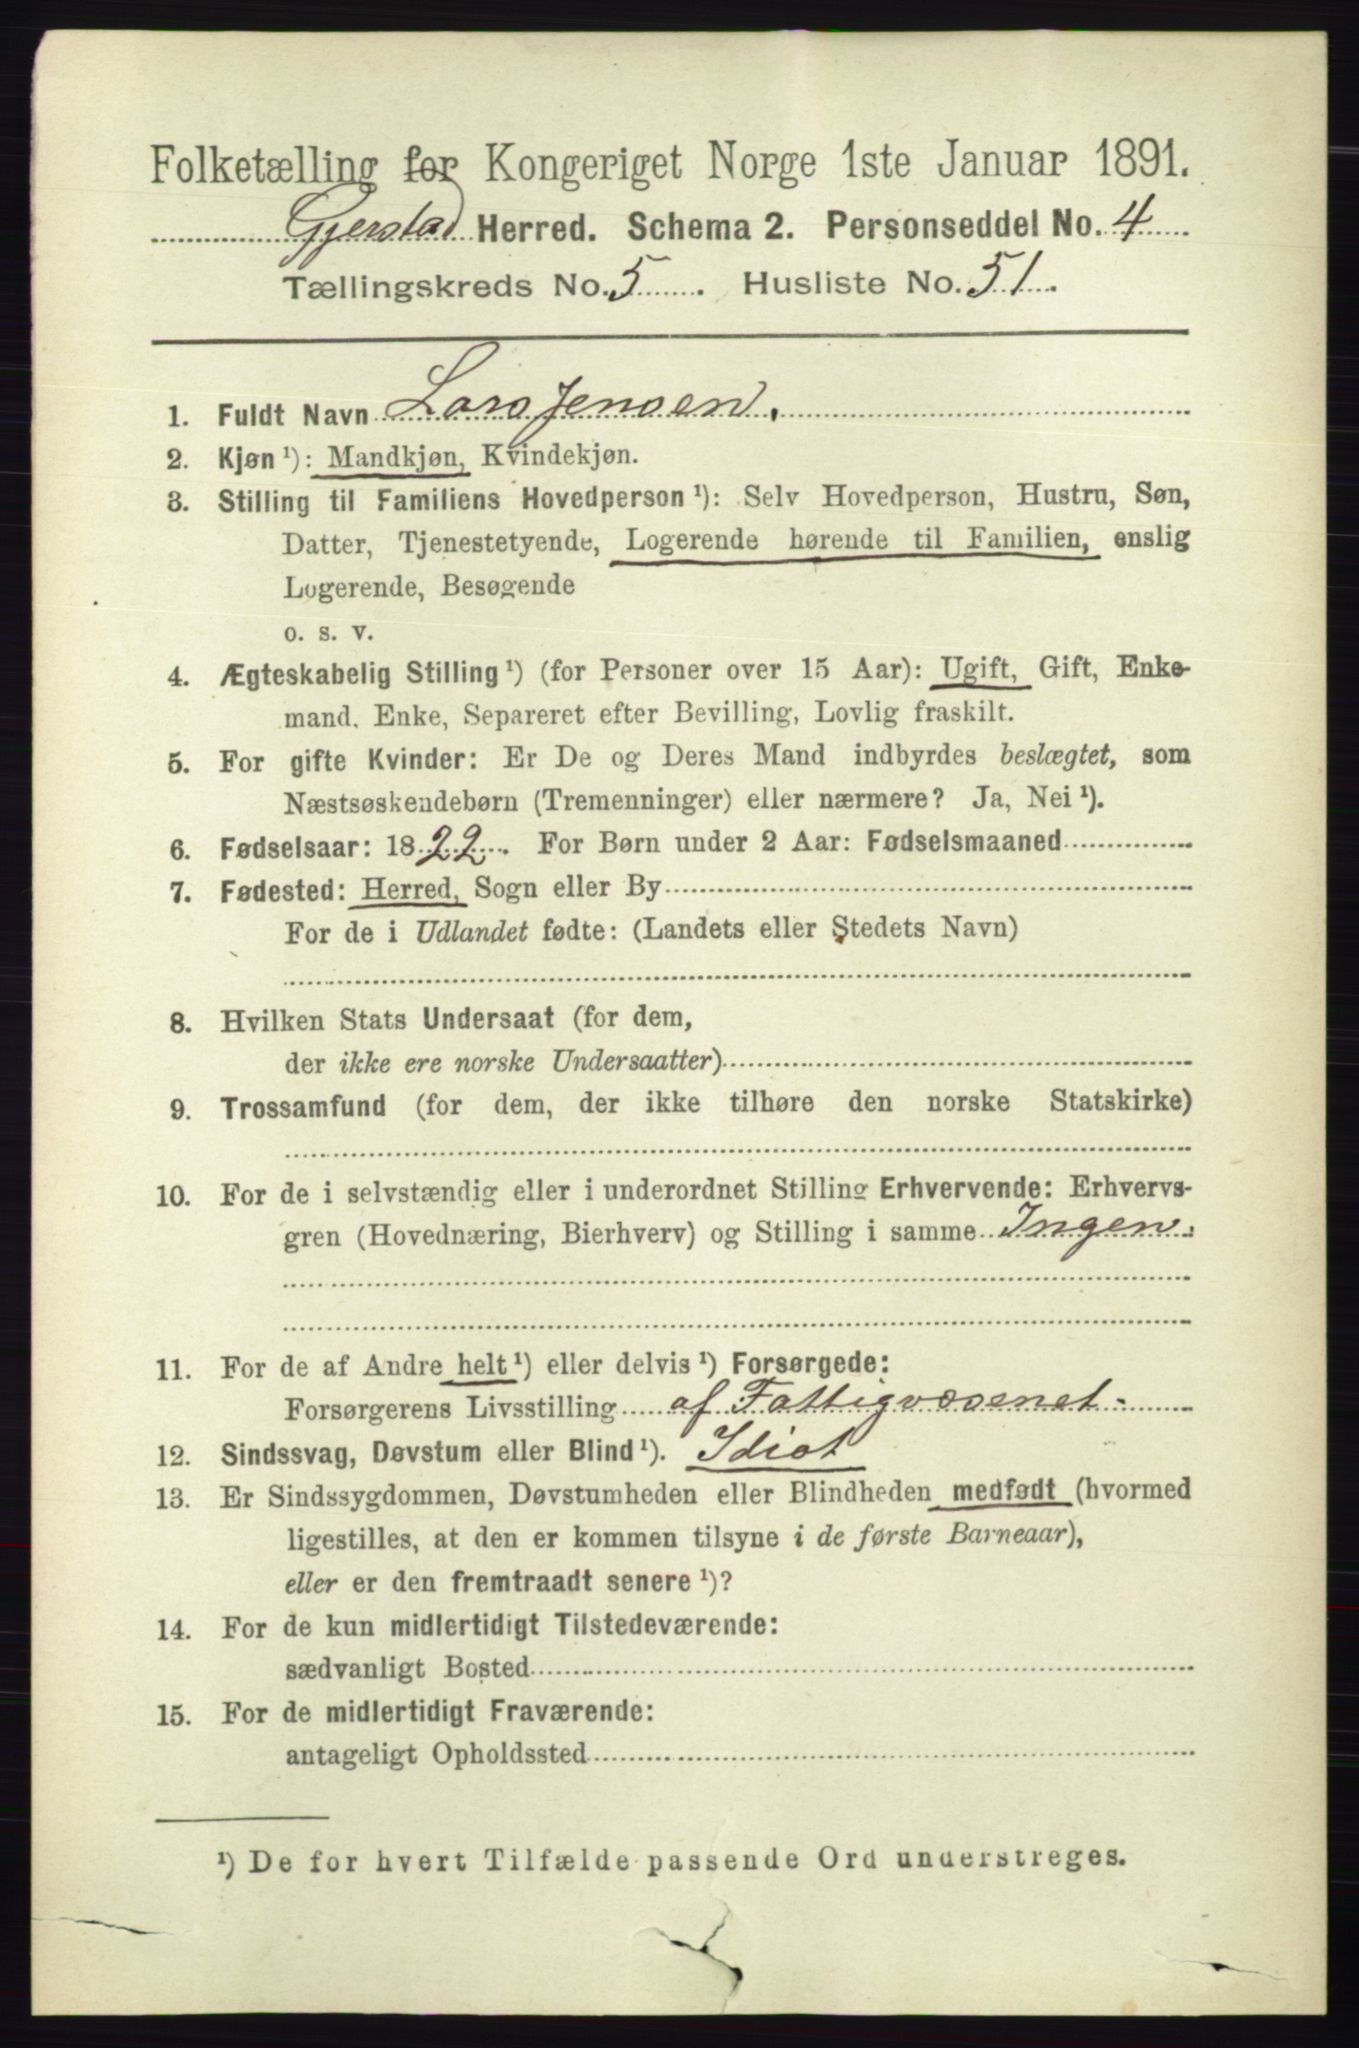 Folketælling for Kongeriget Norge 1ste Januar 1891.
Gjerstad Herred. Schema 2. Personseddel No. 4
Tællingskreds No. 5. Husliste No. 51.
1. Fuldt Navn Lars Jensen.
2. Kjøn ¹): Mandkjøn, Kvindekjøn.
3. Stilling til Familiens Hovedperson ¹): Selv Hovedperson, Hustru, Søn,
Datter, Tjenestetyende, Logerende hørende til Familien, enslig
Logerende, Besøgende
o. s. v.
4. Ægteskabelig Stilling ¹) (for Personer over 15 Aar): Ugift, Gift, Enke-
mand. Enke, Separeret efter Bevilling, Lovlig fraskilt.
5. For gifte Kvinder: Er De og Deres Mand indbyrdes beslægtet, som
Næstsøskendebørn (Tremenninger) eller nærmere? Ja, Nei ¹).
6. Fødselsaar: 1822. For Børn under 2 Aar: Fødselsmaaned
7. Fødested: Herred, Sogn eller By
For de i Udlandet fødte: (Landets eller Stedets Navn)
8. Hvilken Stats Undersaat (for dem,
der ikke ere norske Undersaatter)
9. Trossamfund (for dem, der ikke tilhøre den norske Statskirke)
10. For de i selvstændig eller i underordnet Stilling Erhvervende: Erhvervs-
gren (Hovednæring, Bierhverv) og Stilling i samme Ingen.
11. For de af Andre helt ¹) eller delvis ¹) Forsørgede:
Forsørgerens Livsstilling af Fattigvæsenet.
12. Sindssvag, Døvstum eller Blind ¹). Idiot
13. Er Sindssygdommen, Døvstumheden eller Blindheden medfødt (hvormed
ligestilles, at den er kommen tilsyne i de første Barneaar),
eller er den fremtraadt senere ¹)?
14. For de kun midlertidigt Tilstedeværende:
sædvanligt Bosted
15. For de midlertidigt Fraværende:
antageligt Opholdssted
¹) De for hvert Tilfælde passende Ord understreges.